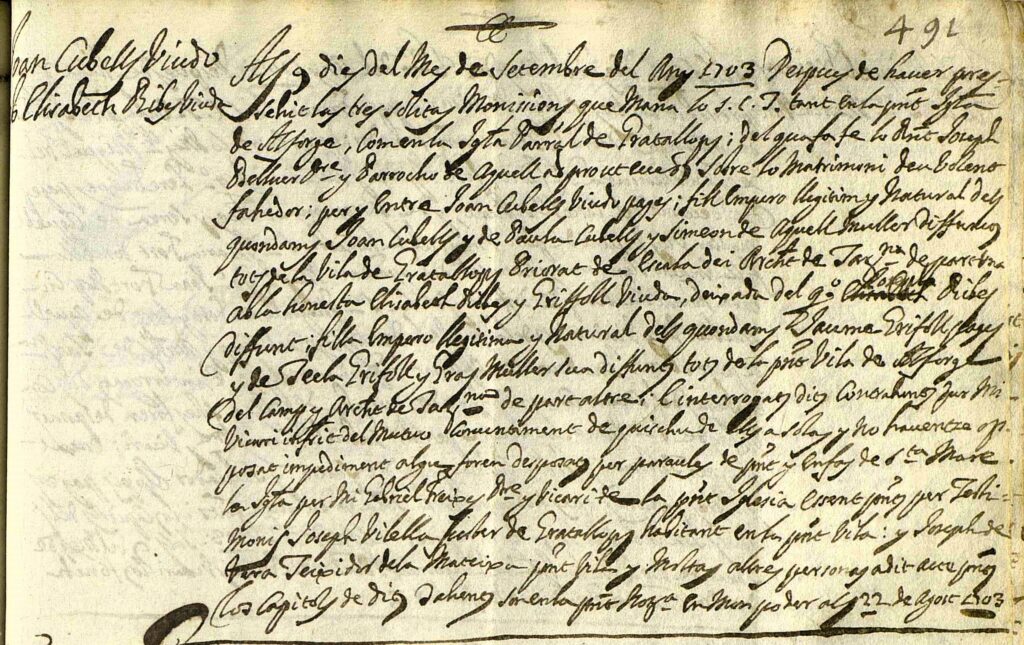 491
Joan Cubells Viudo
Elisabeth Ribes Viuda
Als 9 dies del Mes de Setembre del Any 1703 Despues de haver pres-
sehit las tres solitas Monissions que Mana lo S. C. T. tant en la pnt Igla
de Alforge, Com en la Igla Parral de Gratallops; del qua fa fe lo Rnt Joseph
Bellver Pre y Parrocho de Aquell Sobre lo Matrimoni deu volent
fahedor; per y Entre Joan Cubells Viudo pages; fill Emparo llegitim y Natural dels
quondams Joan Cubells y de Paula Cubells y Simeon de Aquell muller diffuncts
tots de la Vila de Gratallops Priorat de Escala dei Archt de Tarna de part una
ab la honesta Elisabeth Ribes y Griffoll Viuda, deixada del qo Ribes
Diffunt; filla Emparo llegitima y Natural dels quondams Jaume Grifoll pages
y de Tecla Grifoll y Gras Muller sua diffuncts tots de la pnt Vila de Alforge
del Camp y Archt de Tarna de part altre; l'interrogats dits Contrahents per Mi
Vicari infrit del Mutuo Consentament de quiscu de Ells a solas y No haventse op-
posat impediment algu, foren desposats per paraules de pnt y en fas de Sta Mare
la Igla per Mi Gabriel Pre y Vicari de la pnt Iglesia essent pnts per Testi-
monis Joseph Vilella de Gratallops habitant en la pnt Vila: y Joseph
Teixidor de la Mateixa pnt Vila y Moltas altres personas a dit acte pnts
Los Capitols de dits Dahents son en la pnt en Mon poder als 22 de Agost 1703